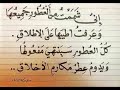 إني شممت من العطور جميعها
وعرفت أطيبها على الإطلاق
كل العطور سينتهي مفعولها
ويدوم عطر مكارم الأخلاق